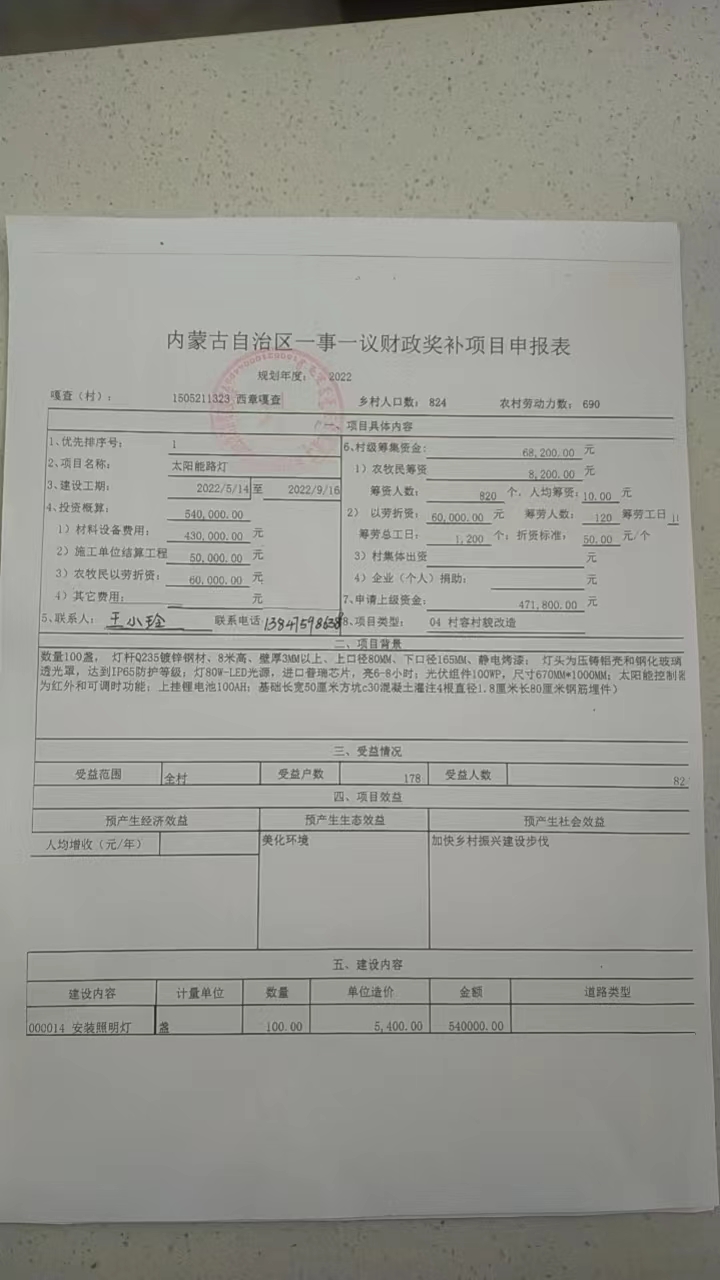 内蒙古自治区一事一议财政奖补项目申报表
规划年度: 2022
嘎查（村）: 1505211323 西章嘎查 乡村人口数: 824 农村劳动力数: 690
一、项目具体内容
1、优先排序号: 1
2、项目名称: 太阳能路灯
3、建设工期: 2022/5/14 至 2022/9/16
4、投资概算: 540,000.00
1）材料设备费用: 430,000.00 元
2）施工单位结算工程 50,000.00 元
3）农牧民以劳折资: 60,000.00 元
4）其它费用: 元
5、联系人: 王小玲 联系电话
6、村级筹集资金: 68,200.00 元
1）农牧民筹资 8,200.00 元
筹资人数: 820 个，人均筹资: 10.00 元
2） 以劳折资: 60,000.00 元 筹劳人数: 120 筹劳工日
筹劳总工日: 1,200 个; 折资标准: 50.00 元/个
3）村集体出资 元
4）企业（个人）捐助: 元
7、申请上级资金: 471,800.00 元
8、项目类型: 04 村容村貌改造
二、项目背景
数量100盏， 灯杆Q235镀锌钢材、8米高、壁厚3MM以上、上口径80MM、下口径165MM、静电烤漆； 灯头为压铸铝壳和钢化玻璃
透光罩，达到IP65防护等级；灯80W-LED光源，进口普瑞芯片，亮6-8小时；光伏组件100WP，尺寸670MM*1000MM；太阳能控制
为红外和可调时功能；上挂锂电池100AH；基础长宽50厘米方坑c30混凝土灌注4根直径1.8厘米长80厘米钢筋埋件）
三、受益情况
受益范围 全村 受益户数 178 受益人数 82
四、项目效益
预产生经济效益 预产生生态效益 预产生社会效益
人均增收（元/年） 美化环境 加快乡村振兴建设步伐
五、建设内容
建设内容 计量单位 数量 单位造价 金额 道路类型
000014 安装照明灯 盏 100.00 5,400.00 540000.00